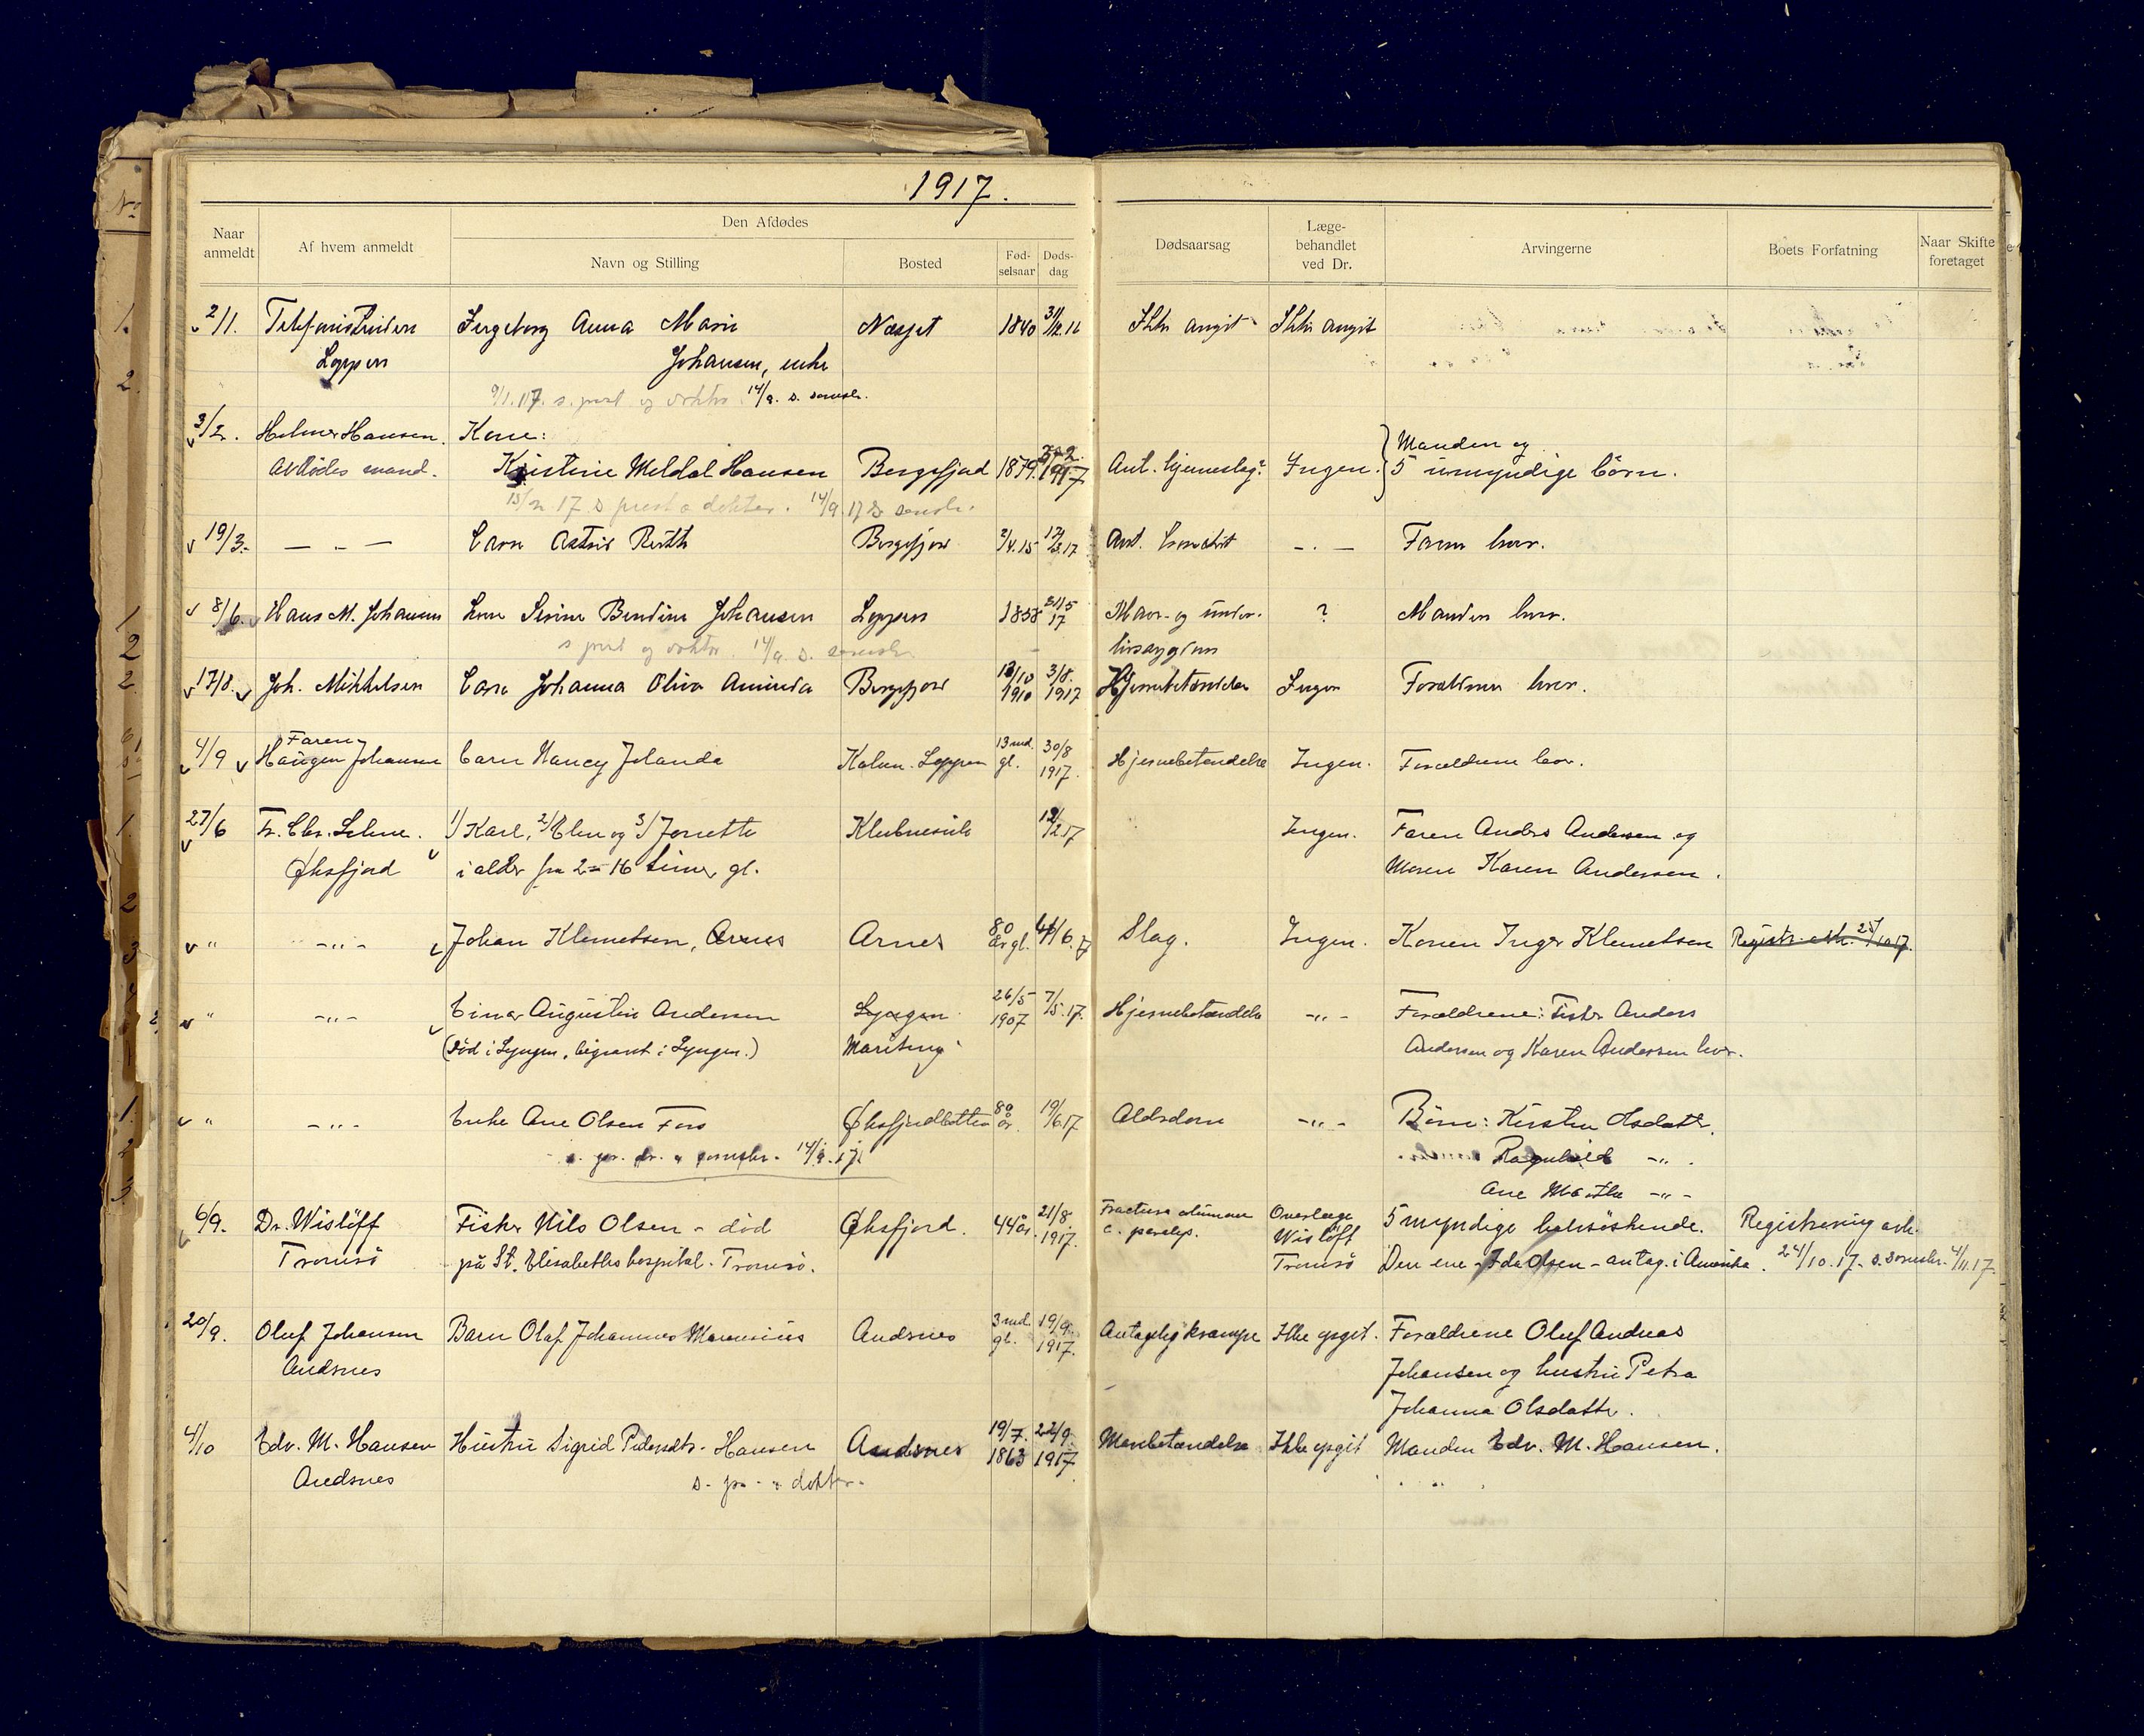 1917.
Naar anmeldt
Af hvem anmeldt
Den Afdødes
Navn og Stilling
Bosted
Fød-selsaar
Døds-dag
Dødsaarsag
Læge-behandlet ved Dr.
Arvingerne
Boets Forfatning
Naar Skifte foretaget
2/1. Telefonistinden Ingeborg Anna Marie Næsset 1840 31/12.16 Ikke angit Ikke angit
Loppen Johansen, enke
9/1.17. s. prest og doktor. 14/9. s. sorensk.
3/2. Helmer Hansen. Kone: Manden og
Avdødes mand. Kristine Meldal Hansen Bergsfjord 1879. 1917 Ant. hjerneslag? Ingen. 5 umyndige börn.
15/2 17 s prest o doktor. 14/9.17 s sorensk.
19/3. — . — barn Astrid Ruth Bergsfjord 2/4.15 12/3.17 Ant. bronchit — . — Faren lever.
8/6. Hans M. Johansen kone Serine Bendine Johansen Loppen 1858 21/5 17 Mave- og under- ? Manden lever.
livssygdom
s prest og doktor. 14/9. s. sorensk.
17/8. Joh. Mikkelsen barn Johanna Oliva Aminda Bergsfjord 13/10 1910 3/8. 1917 Hjernebetændelse Ingen Forældrene lever.
4/9 Faren Haugen Johansen barn Nancy Jolanda Kalven. Loppen 13 md. gl. 30/8 1917. Hjernebetændelse Ingen. Forældrene lever.
27/6 Fr. Chr. Lehne. 1/ Karl, 2/ Elen og 3/ Jonette Klubnesvik 12/2 17 Ingen. Faren Anders Andersen og
Øksfjord i alder fra 2 - 16 timer gl. Moren Karen Andersen.
" - " - Johan Klemetsen, Arnes Arnes 80 år gl. /6.17 Slag. Ingen. Konen Inger Klemetsen Registr. avh. 25/10 17.
" - " - Einar Augustin Andersen Lyngen 26/5 1907 7/5.17. Hjernebetændelse - " - Forældrene: Fisker Anders
(Död i Lyngen, begravet i Lyngen.) Andersen og Karen Andersen lever.
" - " - Enke Ane Olsen Fors Øksfjordbotten 80 år. 19/6 17 Aldsdom - " - Börn: Kirsten Olsdatter.
14/9. 17. Ragnhild - " -
Ane Marthe - " -
6/9. Dr. Wislöff Fisker Nils Olsen - död Øksfjord. 44 år. 21/8 1917. Fractura c. paralys. Overlæge Wislöff 5 myndige helsöskende. Registrering avh.
Tromsö på St. Elisabeths hospital. Tromsö. Tromsö Den ene - Ida Olsen - antag. i Amerika. 24/10.17. s. sorenskr. 4/11.17.
20/9. Oluf Johansen Barn Olaf Johannes Marensius Andsnes 3 md. gl. 19/9. 1917. Antagelig krampe Ikke opgit. Forældrene Oluf Andreas
Andsnes Johansen og hustru Petra
Johanna Olsdatter.
4/10 Edv. M. Hansen Hustru Sigrid Pedersdtr. Hansen Andsnes 19/7. 1863 22/9. 1917. Mavebetændelse Ikke opgit Manden Edv. M. Hansen.
Andsnes s. pr. o doktor.